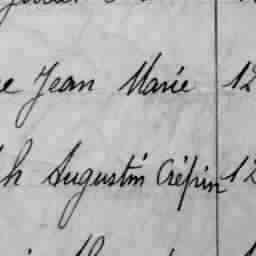 e Jean Marie 12
h Augustin Crépin 12